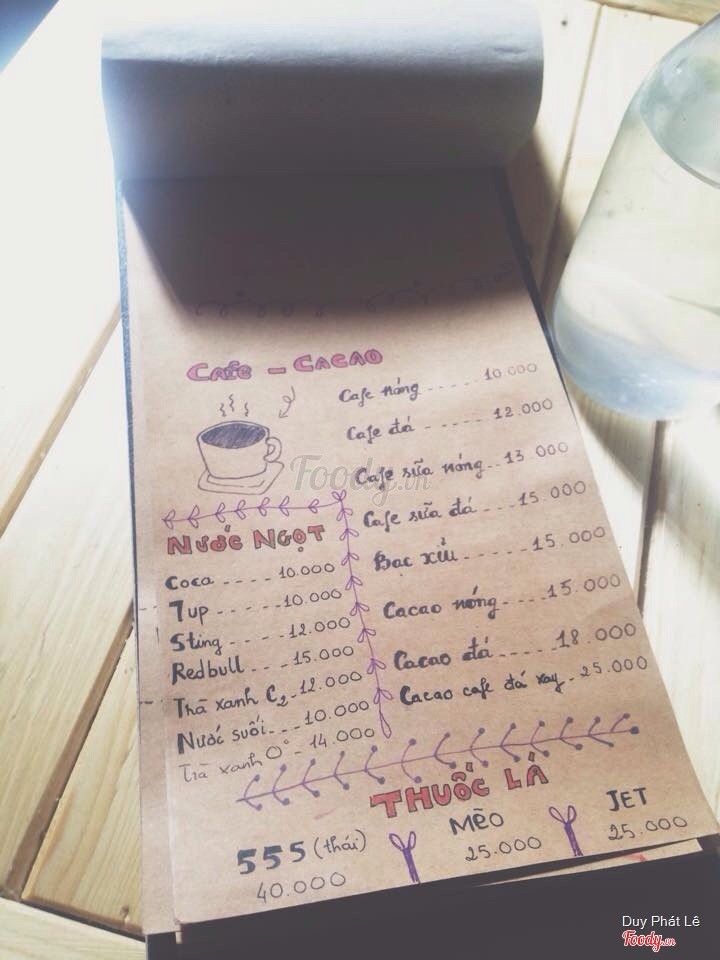 CAFE - CACAO
Cafe nóng ----- 10.000
Cafe đá ----- 12.000
Cafe sữa nóng -- 13.000
Cafe sữa đá ---- 15.000
Bạc xỉu ------ 15.000
Cacao nóng ---- 15.000
Cacao đá ----- 18.000
Cacao cafe đá xay - 25.000
NƯỚC NGỌT
Coca ---- 10.000
7up ----- 10.000
Sting ---- 12.000
Redbull --- 15.000
Trà xanh C2 - 12.000
Nước suối --- 10.000
Trà xanh 0° - 14.000
THUỐC LÁ
555 (thái)
40.000
MÈO
25.000
JET
25.000
Foody.vn
Duy Phát Lê
Foody.vn